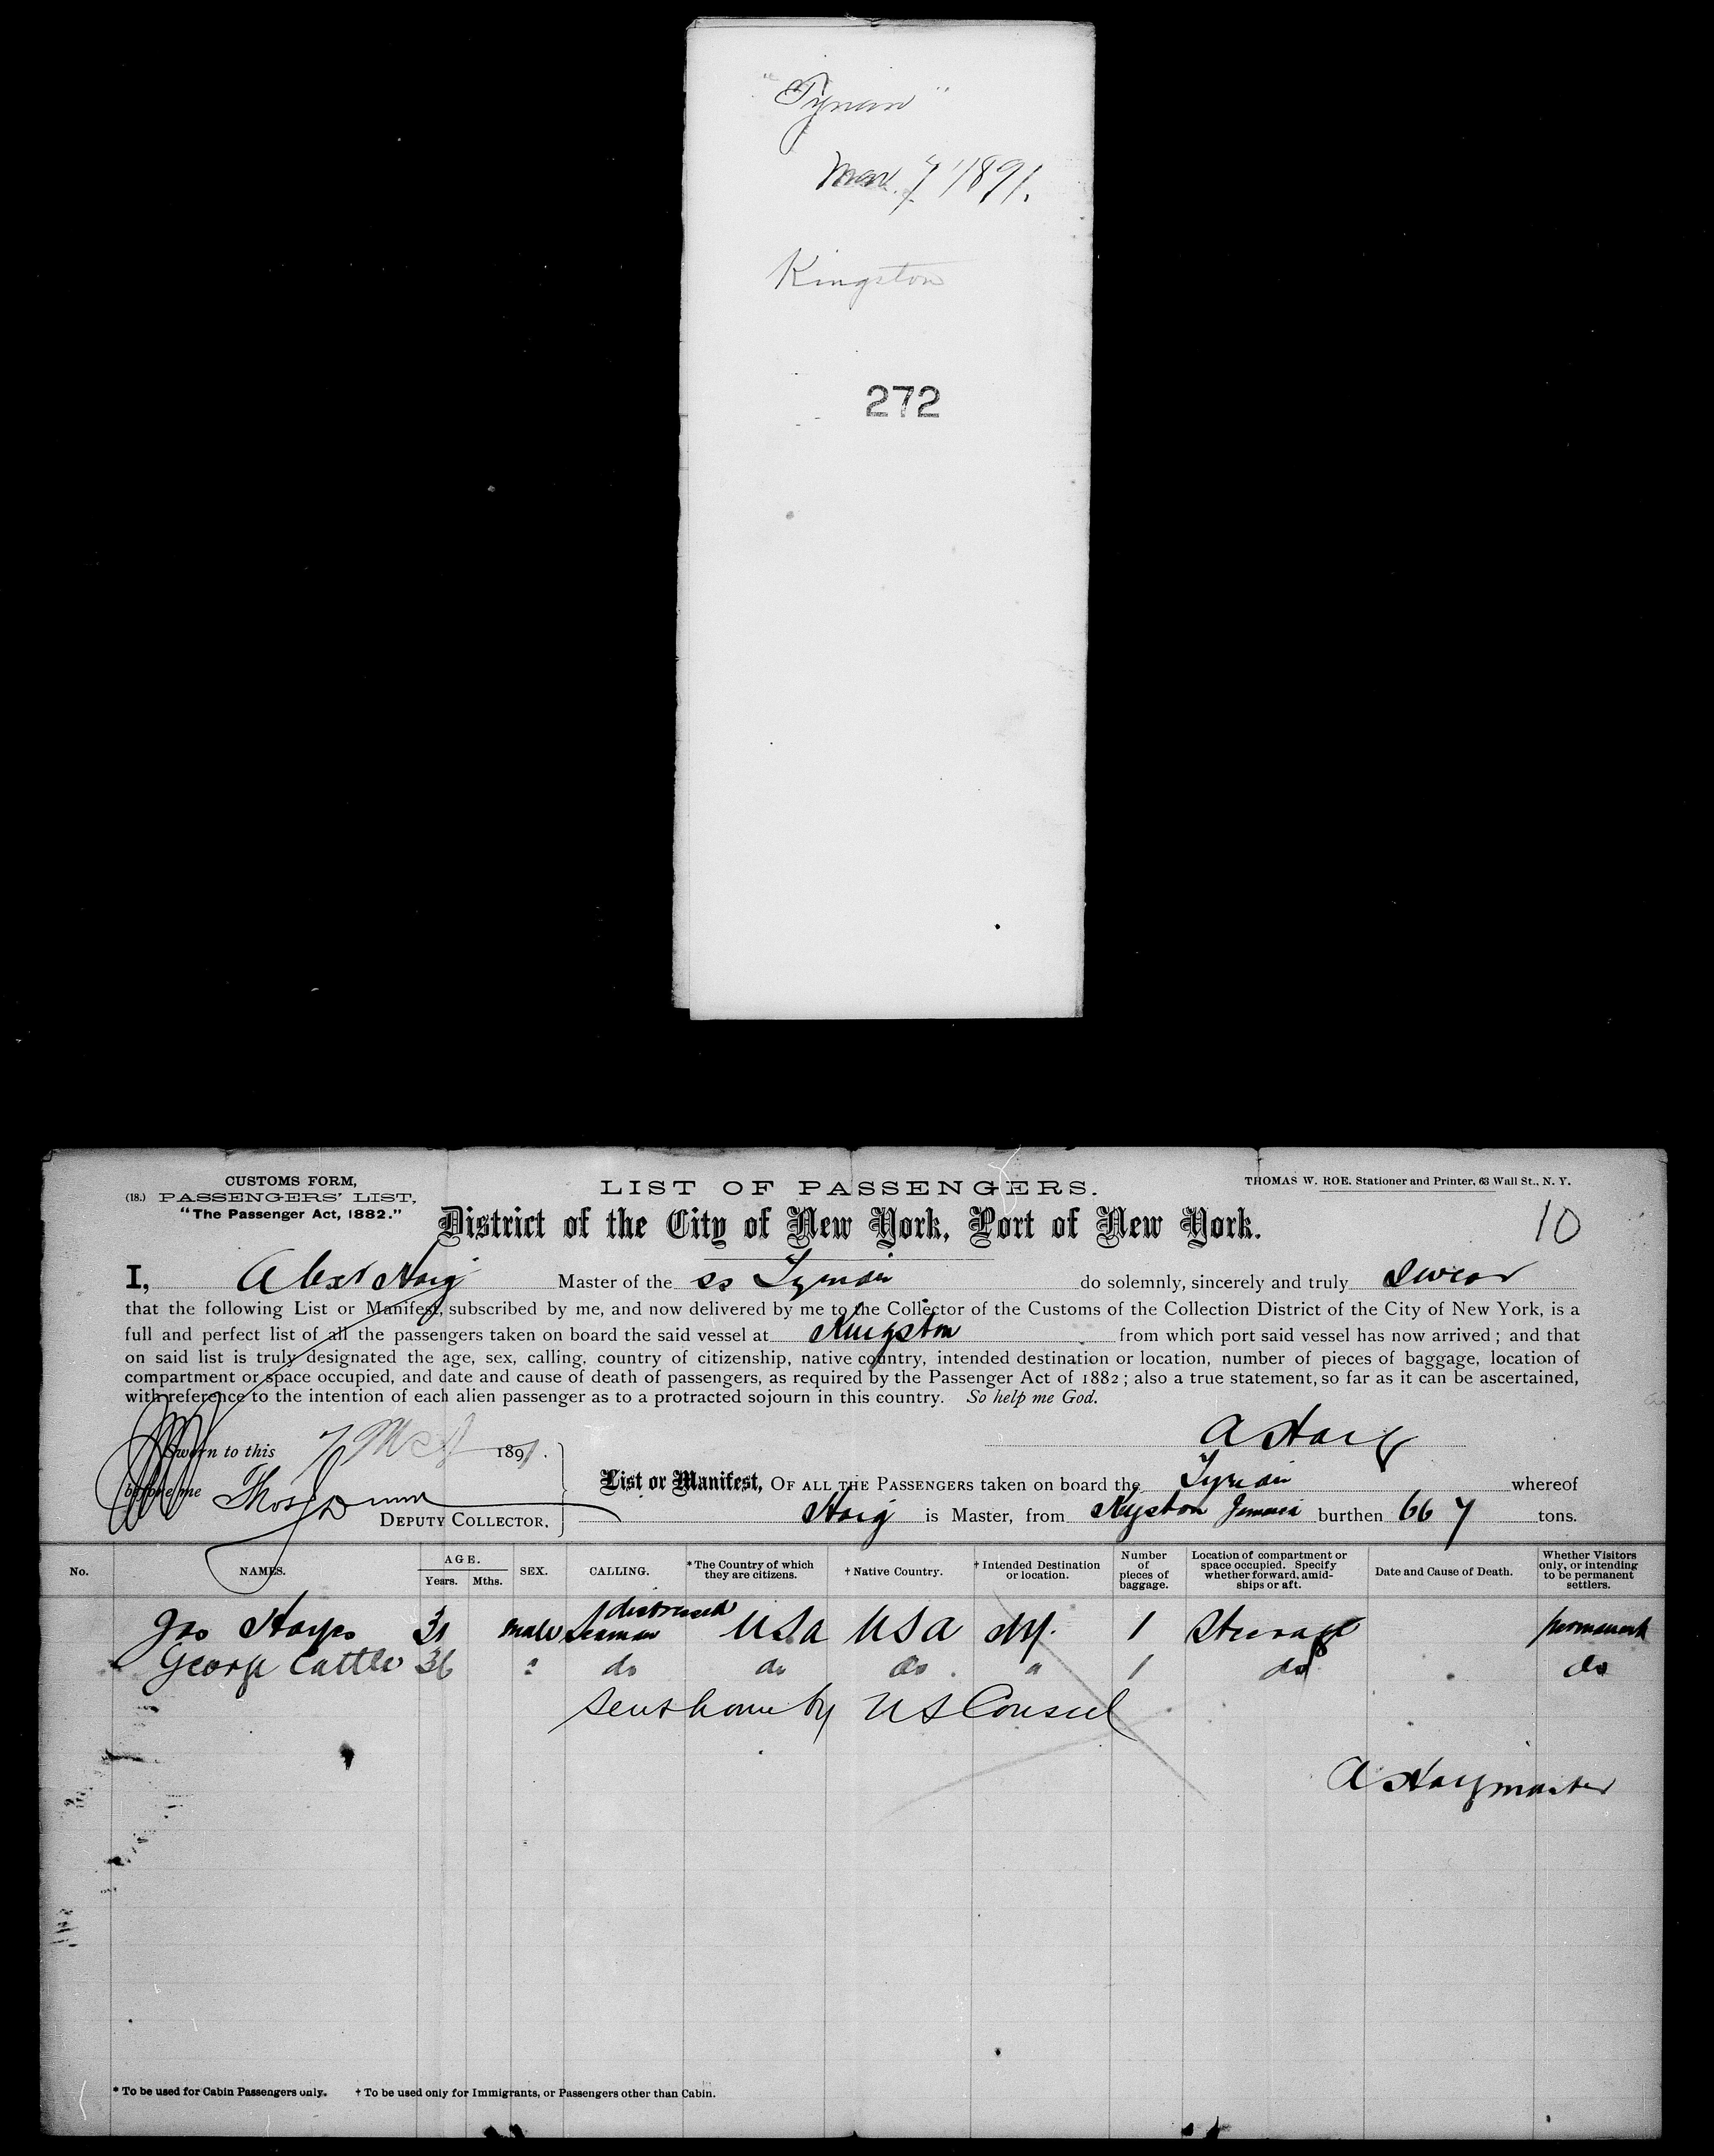 "Tynan"
Mar. 7 1891.
Kingston
272
CUSTOMS FORM,
(18.) PASSENGERS' LIST,
"The Passenger Act, 1882."
LIST OF PASSENGERS.
THOMAS W. ROE. Stationer and Printer, 63 Wall St., N. Y.
District of the City of New York, Port of New York.
10
I, Alexr Haig Master of the ss Tynan do solemnly, sincerely and truly swear
that the following List or Manifest, subscribed by me, and now delivered by me to the Collector of the Customs of the Collection District of the City of New York, is a
full and perfect list of all the passengers taken on board the said vessel at Kingston from which port said vessel has now arrived; and that
on said list is truly designated the age, sex, calling, country of citizenship, native country, intended destination or location, number of pieces of baggage, location of
compartment or space occupied, and date and cause of death of passengers, as required by the Passenger Act of 1882; also a true statement, so far as it can be ascertained,
with reference to the intention of each alien passenger as to a protracted sojourn in this country. So help me God.
A Haig
Sworn to this 7 Mch 1891.
before me Thos Dunn
DEPUTY COLLECTOR.
List or Manifest, OF ALL THE PASSENGERS taken on board the Tynan whereof
Haig is Master, from Kgston Jamaica burthen 667 tons.
No. NAMES. AGE. Years. Mths. SEX. CALLING. * The Country of which they are citizens. † Native Country. † Intended Destination or location. Number of pieces of baggage. Location of compartment or space occupied. Specify whether forward, amidships or aft. Date and Cause of Death. Whether Visitors only, or intending to be permanent settlers.
Jas Hayes 31 male distressed seaman USA USA NY. 1 Steerage permanent
George Cattle 36 " do do do " 1 do do
sent home by US Consul
A Haig master
* To be used for Cabin Passengers only. † To be used only for Immigrants, or Passengers other than Cabin.